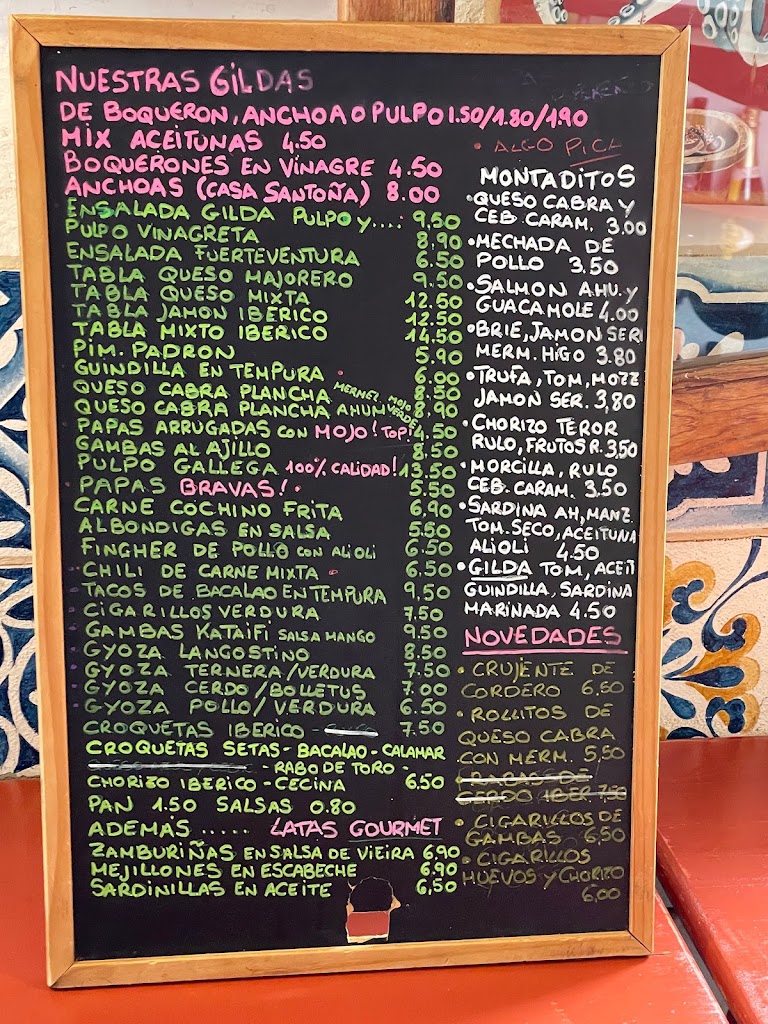 NUESTRAS GILDAS
DE BOQUERON, ANCHOA O PULPO 1.50/1.80/1.90
MIX ACEITUNAS 4.50
BOQUERONES EN VINAGRE 4.50
ANCHOAS (CASA SANTOÑA) 8.00
ENSALADA GILDA PULPO y....: 9.50
PULPO VINAGRETA 8.90
ENSALADA FUERTEVENTURA 6.50
TABLA QUESO MAJORERO 9.50
TABLA QUESO MIXTA 12.50
TABLA JAMON IBERICO 12.50
TABLA MIXTO IBERICO 14.50
PIM. PADRON 5.90
GUINDILLA EN TEMPURA 6.00
QUESO CABRA PLANCHA MERMEL. MOJO 8.50
QUESO CABRA PLANCHA AHUM VERDE 8.90
PAPAS ARRUGADAS CON MOJO! TOP! 4.50
GAMBAS AL AJILLO 8.50
PULPO GALLEGA 100% CALIDAD! 13.50
PAPAS BRAVAS! 5.50
CARNE COCHINO FRITA 6.90
ALBONDIGAS EN SALSA
FINGHER DE POLLO CON ALIOLI 6.50
CHILI DE CARNE MIXTA 6.50
TACOS DE BACALAO EN TEMPURA 9.50
CIGARILLOS VERDURA 7.50
GAMBAS KATAIFI SALSA MANGO 9.50
GYOZA LANGOSTINO 8.50
GYOZA TERNERA/VERDURA 7.50
GYOZA CERDO/BOLLETUS 7.00
GYOZA POLLO/VERDURA 6.50
CROQUETAS IBERICO - 7.50
CROQUETAS SETAS - BACALAO - CALAMAR
- RABO DE TORO -
CHORIZO IBERICO - CECINA 6.50
PAN 1.50 SALSAS 0.80
ADEMÁS ..... LATAS GOURMET
ZAMBURIÑAS EN SALSA DE VIEIRA 6,90
MEJILLONES EN ESCABECHE 6,90
SARDINILLAS EN ACEITE 6,50
• ALGO PICA
MONTADITOS
• QUESO CABRA Y
CEB. CARAM. 3.00
• MECHADA DE
POLLO 3.50
• SALMON AHU. Y
GUACAMOLE 4.00
• BRIE, JAMON SER.
MERM. HIGO 3.80
• TRUFA, TOM, MOZZ
JAMON SER. 3,80
• CHORIZO TEROR
RULO, FRUTOS R. 3,50
• MORCILLA, RULO
CEB. CARAM. 3.50
• SARDINA AH, MANZ.
TOM. SECO, ACEITUNA
ALIOLI 4.50
• GILDA TOM, ACEIT
GUINDILLA, SARDINA
MARINADA 4.50
NOVEDADES
• CRUJENTE DE
CORDERO 6,50
• ROLLITOS DE
QUESO CABRA
CON MERM. 5,50
RABAS DE
CERDO IBER 7.50
• CIGARILLOS DE
GAMBAS 6,50
• CIGARILLOS
HUEVOS Y CHORIZO
6,00